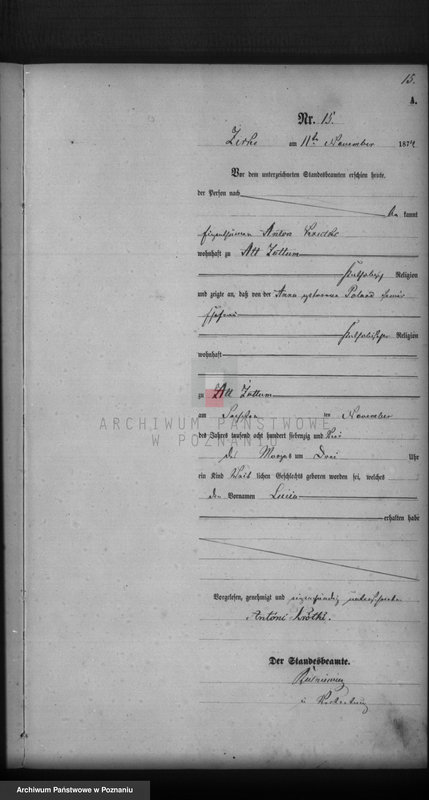 15.
A.
Nr. 15.
Zirke am 11ten November 1874
Vor dem unterzeichneten Standesbeamten erschien heute,
der Person nach
kannt
Eigenthümer Anton
wohnhaft zu Alt Zattum
katholischer Religion
und zeigte an, daß von der Anna geborene Poland
Ehefrau
katholischer Religion
wohnhaft
zu Alt Zattum
am Sechsten ten November
des Jahres tausend acht hundert siebenzig und Vier
des Morgens um Drei Uhr
ein Kind Weiblichen Geschlechts geboren worden sei, welches
den Vornamen Lucia
erhalten habe
Vorgelesen, genehmigt und eigenhändig unterschrieben
Antóni Krótki.
Der Standesbeamte.
in Vertretung
ARCHIWUM PAŃSTWOWE
W POZNANIU
Archiwum Państwowe w Poznaniu